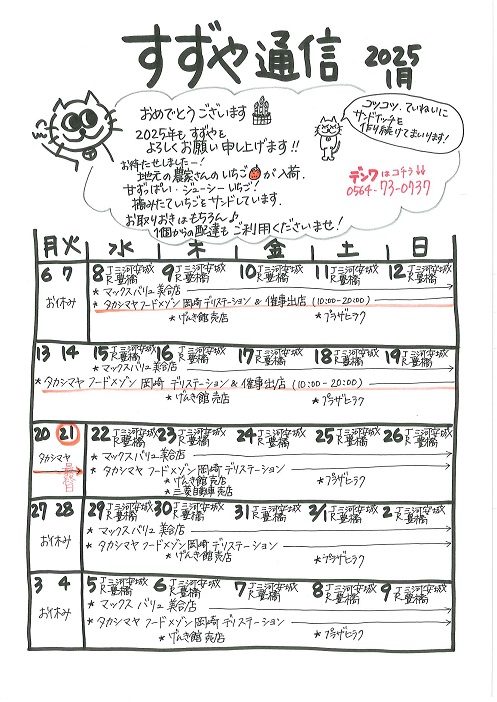 すずや通信 2025 1月
おめでとうございます
2025年も すずやを
よろしくお願い申し上げます!!
お待たせしましたー!
地元の農家さんのいちごが入荷.
甘ずっぱい・ジューシーいちご!
摘みたていちごをサンドしています.
お取りおきはもちろん♪
1個からの配達もご利用くださいませ!
コツコツ、ていねいに
サンドイッチを
作り続けてまいります!
デンワはコチラ↓↓
0564-73-0737
月 火 水 木 金 土 日
6 7 8 J三河安城 R豊橋 9 J三河安城 R豊橋 10 J三河安城 R豊橋 11 J三河安城 R豊橋 12 J三河安城 R豊橋
お休み
* マックスバリュ美合店
* タカシマヤフードメゾン岡崎デリステーション & 催事出店 (10:00-20:00)
* げんき館売店 * プラザヒラク
13 14 15 J三河安城 R豊橋 16 J三河安城 R豊橋 17 J三河安城 R豊橋 18 J三河安城 R豊橋 19 J三河安城 R豊橋
* マックスバリュ美合店
* タカシマヤ フードメゾン 岡崎 デリステーション & 催事出店 (10:00-20:00)
* げんき館売店 * プラザヒラク
20 21 22 J三河安城 R豊橋 23 J三河安城 R豊橋 24 J三河安城 R豊橋 25 J三河安城 R豊橋 26 J三河安城 R豊橋
タカシマヤ
最終日
* マックスバリュ美合店
* タカシマヤ フードメゾン 岡崎デリステーション
* げんき館 売店 * プラザヒラク
* 三菱自動車売店
27 28 29 J三河安城 R豊橋 30 J三河安城 R豊橋 31 J三河安城 R豊橋 2/1 J三河安城 R豊橋 2 J三河安城 R豊橋
お休み
* マックスバリュ美合店
* タカシマヤフードメゾン岡崎デリステーション
* げんき館 売店 * プラザヒラク
3 4 5 J三河安城 R豊橋 6 J三河安城 R豊橋 7 J三河安城 R豊橋 8 J三河安城 R豊橋 9 J三河安城 R豊橋
お休み
* マックス バリュ 美合店
* タカシマヤ フードメゾン 岡崎 デリステーション
* げんき館 売店 * プラザヒラク